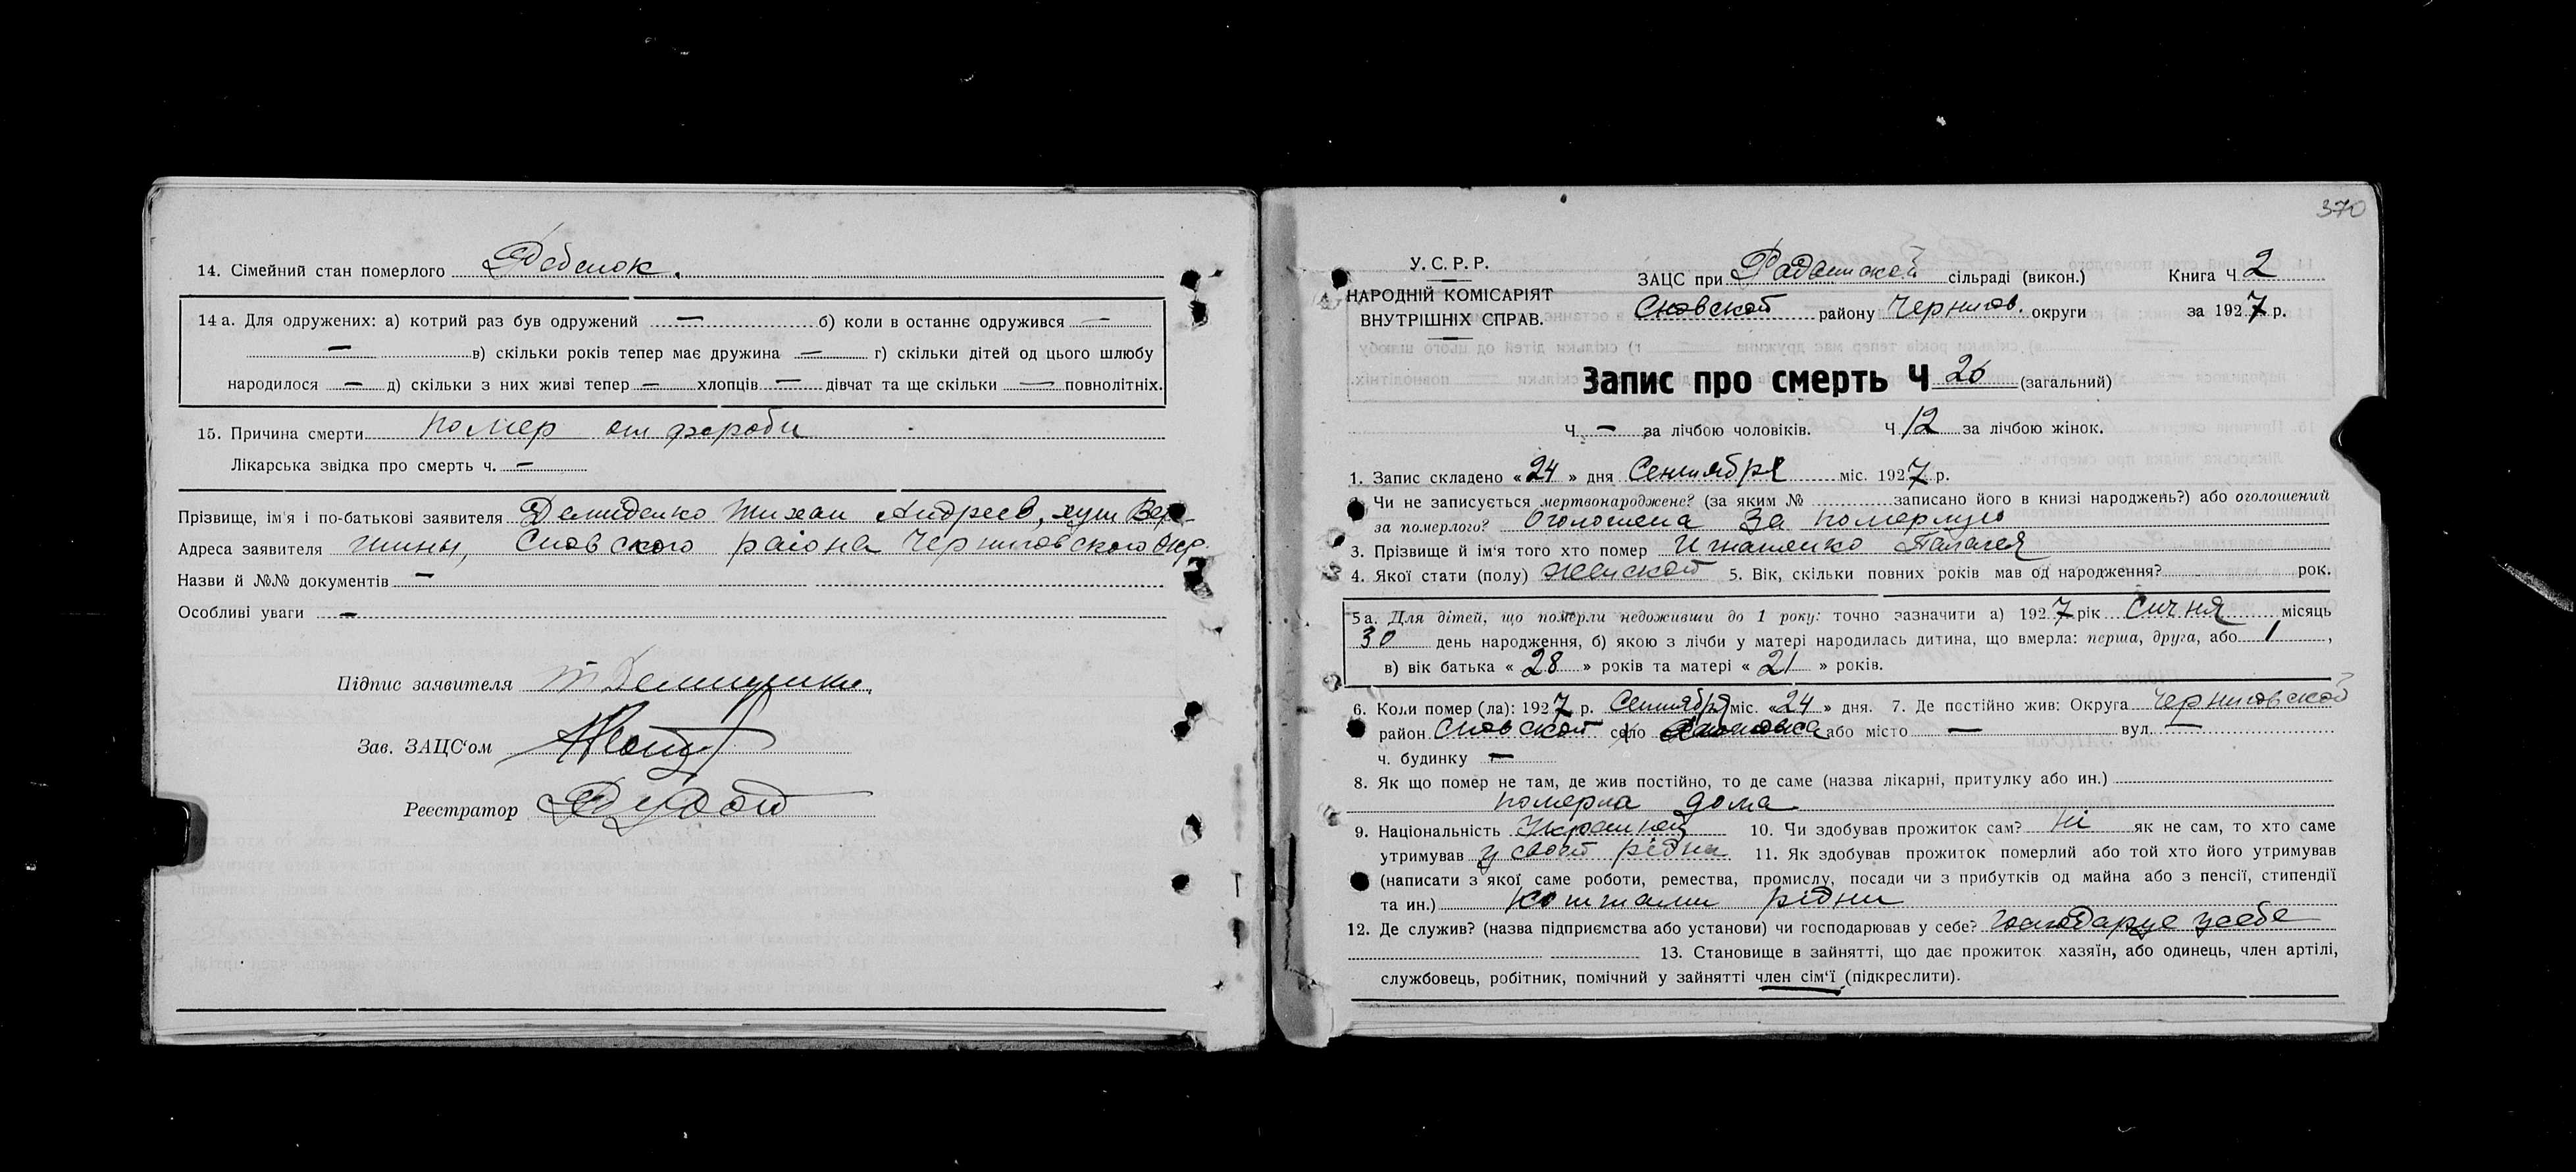 14. Сімейний стан померлого Ребенок.
14 а. Для одружених: а) котрий раз був одружений — б) коли в останнє одружився —
— в) скільки років тепер має дружина — г) скільки дітей од цього шлюбу
народилося — д) скільки з них живі тепер — хлопців — дівчат та ще скільки — повнолітніх.
15. Причина смерти помер от
Лікарська звідка про смерть ч. —
Прізвище, ім'я і по-батькові заявителя Демиденко Тихон Андреев, хут Вер-
Адреса заявителя тины, Сновского раіона Черниговского окр.
Назви й №№ документів —
Особливі уваги —
Підпис заявителя Т Демиденко
Зав. ЗАЦС'ом
Реєстратор
370
У. С. Р. Р.
НАРОДНІЙ КОМІСАРІЯТ
ВНУТРІШНІХ СПРАВ.
ЗАЦС при сільраді (викон.) Книга Ч 2
Сновской району Чернигов. округи за 1927 р.
Запис про смерть Ч 26 (загальний)
Ч. — за лічбою чоловіків. Ч 12 за лічбою жінок.
1. Запис складено « 24 » дня Сентября міс. 1927 р.
Чи не записується мертвонароджене? (за яким № записано його в книзі народжень?) або оголошений
за померлого? Оголошена За померлую
3. Прізвище й ім'я того хто помер Игнатенко Палагея
4. Якої стати (полу) Женской 5. Вік, скільки повних років мав од народження? рок.
5 а. Для дітей, що померли недоживши до 1 року: точно зазначити а) 1927 рік Сичня місяць
30 день народження, б) якою з лічби у матері народилась дитина, що вмерла: перша, друга, або 1,
в) вік батька « 28 » років та матері « 21 » років.
6. Коли помер (ла): 1927 р. Сентября міс. «24» дня. 7. Де постійно жив: Округа Черниговской
район Сновской село або місто — вул. —
ч. будинку —
8. Як що помер не там, де жив постійно, то де саме (назва лікарні, притулку або ин.)
померла дома
9. Національність 10. Чи здобував прожиток сам? Ні як не сам, то хто саме
утримував у своей рідни 11. Як здобував прожиток померлий або той хто його утримував
(написати з якої саме роботи, ремества, промислу, посади чи з прибутків од майна або з пенсії, стипендії
та ин.) коштами рідни
12. Де служив? (назва підприємства або установи) чи господарював у себе? господарує у себе
13. Становище в зайнятті, що дає прожиток хазяїн, або одинець, член артілі,
службовець, робітник, помічний у зайнятті член сім'ї (підкреслити).